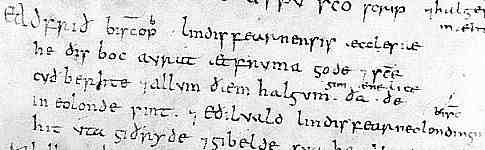 scō scrip ⁊ halge
Eadfrið biscop̄ lindisfearnensis ecclesiæ
he ðis boc avrat æt fruma gode ⁊ scē
cuðberhte ⁊ allum ðæm halgum gimænelice ða ðe
in eolonde sint ⁊ eðilvald lindisfearneolondinga bisc̄
hit uta giðryde ⁊ gibelde